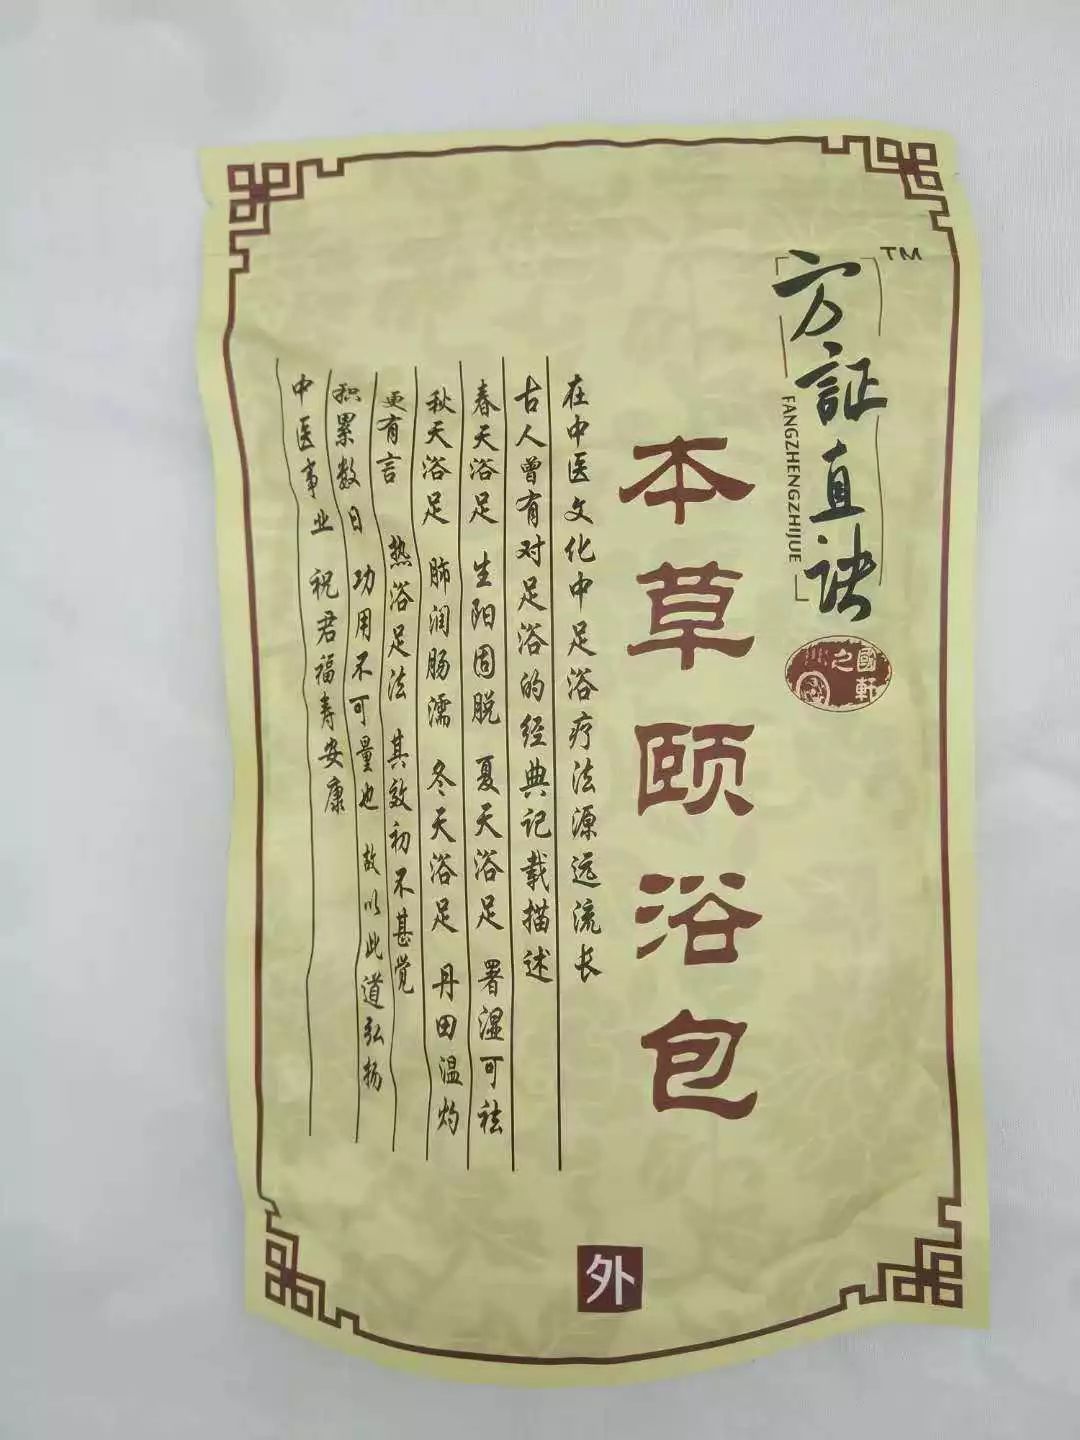 方証直诀
TM
FANGZHENGZHIJUE
國軒
之
本草颐浴包
在中医文化中足浴疗法源远流长
古人曾有对足浴的经典记载描述
春天浴足 生阳固脱 夏天浴足 署湿可祛
秋天浴足 肺润肠濡 冬天浴足 丹田温灼
更有言 热浴足法 其效初不甚觉
积累数日 功用不可量也 故以此道弘扬
中医事业 祝君福寿安康
外